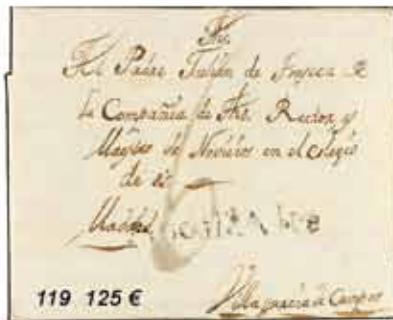 Jhs.
Al Padre Julián de Fonseca de
la Compañia de Jhs. Rector y
Maestro de Novicios en el colegio
de &c
Madrid
Villagarcia de Campos
119 125 €